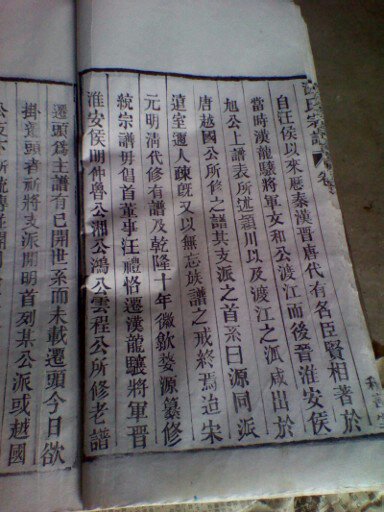 自汪侯以來歷秦漢晉唐代有名臣賢相著於
當時漢龍驤將軍文和公渡江而後晉淮安侯
旭公上譜表所述潁川以及渡江之派咸出於
唐越國公所修之譜其支派之首系曰源同派
遠室邇人疎既又以無忘族譜之戒終焉迨宋
元明清代修有譜及乾隆十年徽歙婺源纂修
統宗譜毋倡首董事汪禮恪遷漢龍驤將軍晉
淮安侯明仲魯公湘公鴻公雲程公所修老譜
遷頭為主譜有已開世系而未載遷頭今日欲
掛遷頭者祈將支派開明首列某公派或越國